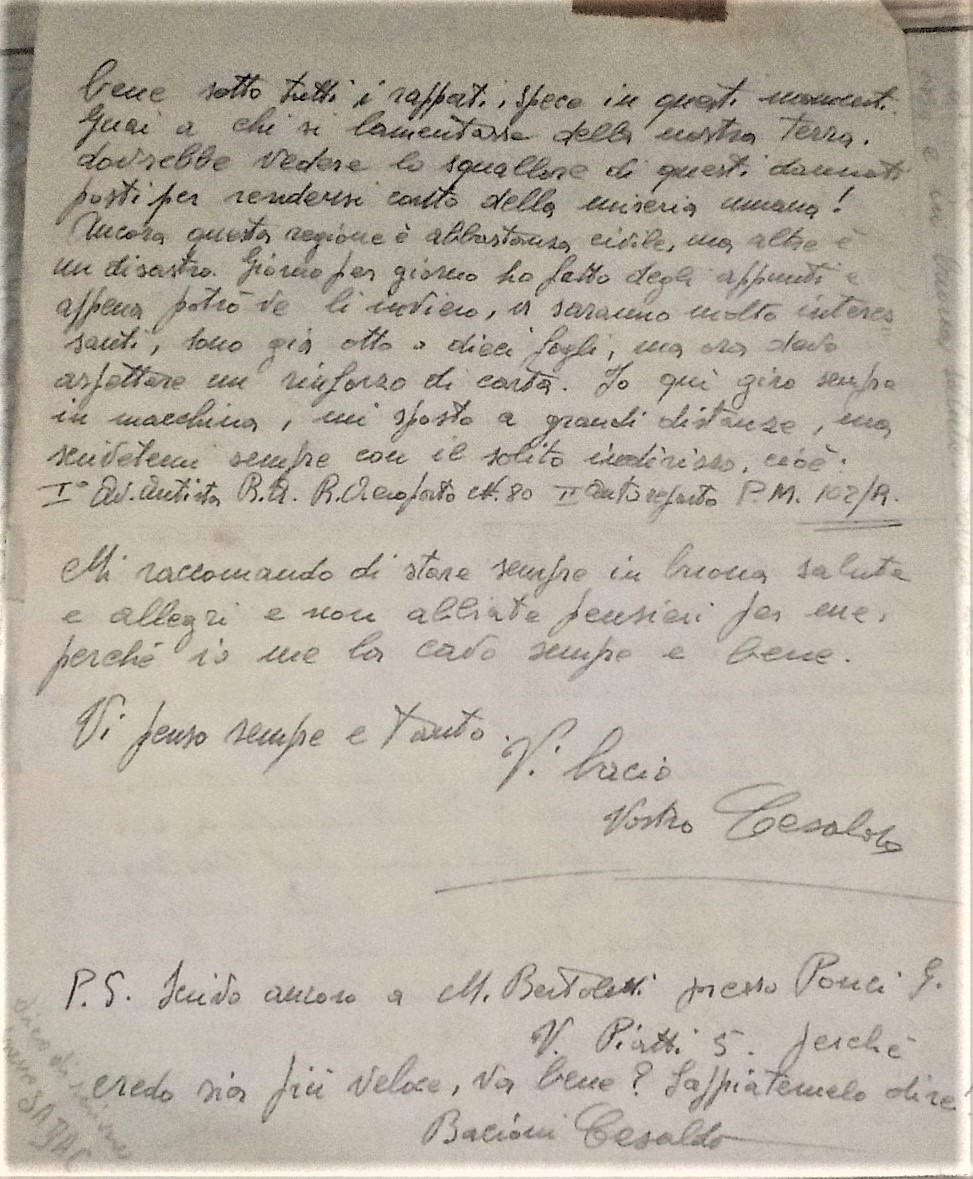 bene sotto tutti i rapporti, spece in questi momenti.
Guai a chi si lamentasse della nostra terra.
dovrebbe vedere lo squallore di questi dannati
posti per rendersi conto della miseria umana!
Ancora questa regione è abbastanza civile, ma altre è
un disastro. Giorno per giorno ho fatto degli appunti e
appena potrò ve li invierò, vi saranno molto interes
santi, sono già otto o dieci fogli, ma ora devo
aspettare un rinforzo di carta. Io qui giro sempre
in macchina, mi sposto a grandi distanze, ma
scrivetemi sempre con il solito indirizzo, cioè:
I° Av. Autista R.A. R. Aeroporto N. 80 II Autoreparto P.M. 102/A.
Mi raccomando di stare sempre in buona salute
e allegri e non abbiate pensieri per me,
perché io me la cavo sempre e bene.
Vi penso sempre e tanto.
V. bacio
Vostro Cesaldo
P.S. Scrivo ancora a M. Bertoletti presso Ponci G.
V. Piatti 5. perché
credo sia più veloce, va bene? Sappiatemelo dire!
Bacioni Cesaldo